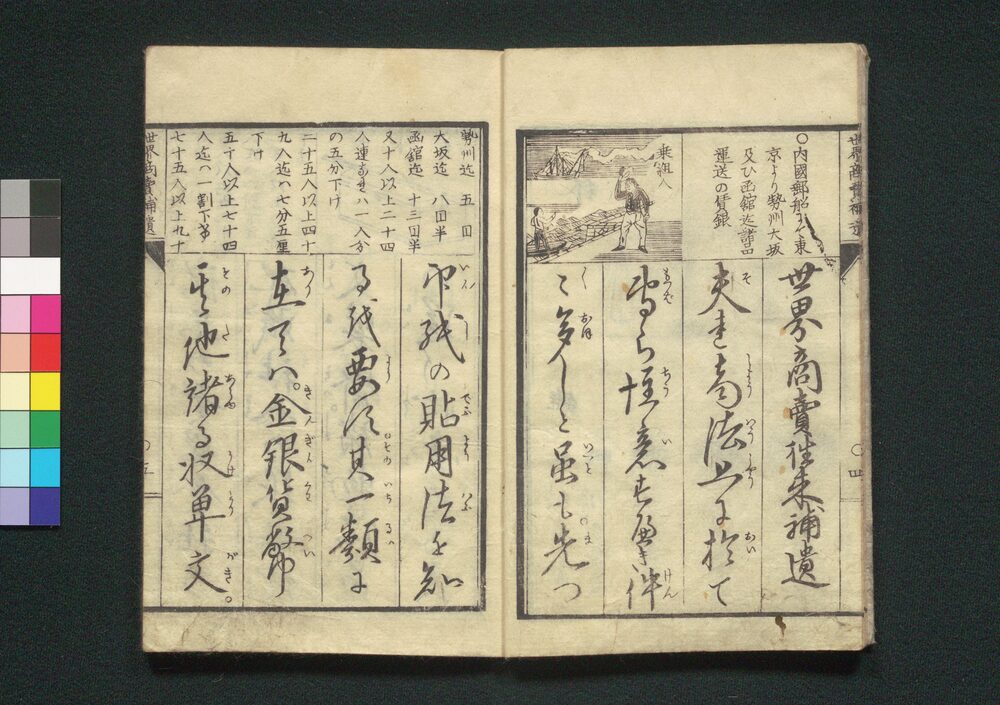 世界商賣往来補遺
○内國郵船にて東
京より勢州大坂
及ひ函館迄諸品
運送の賃銀
乗組人
世界商賣往来補遺
夫
商法上に於て
専ら注意すべき件
多しと虽も先つ
○四
勢州迄 五円
大坂迄 八円半
函館迄 十三円半
又十人以上二十四
人連なれハ一人分
の五分下け
二十五人以上四十
九人迄ハ七分五厘
下け
五十人以上七十四
人迄ハ一割下け
七十五人以上九十
印紙の貼用法を知
るを要す其一類に
在てハ。金銀貨幣
其他諸る収単文
世界商賣補遺
○五